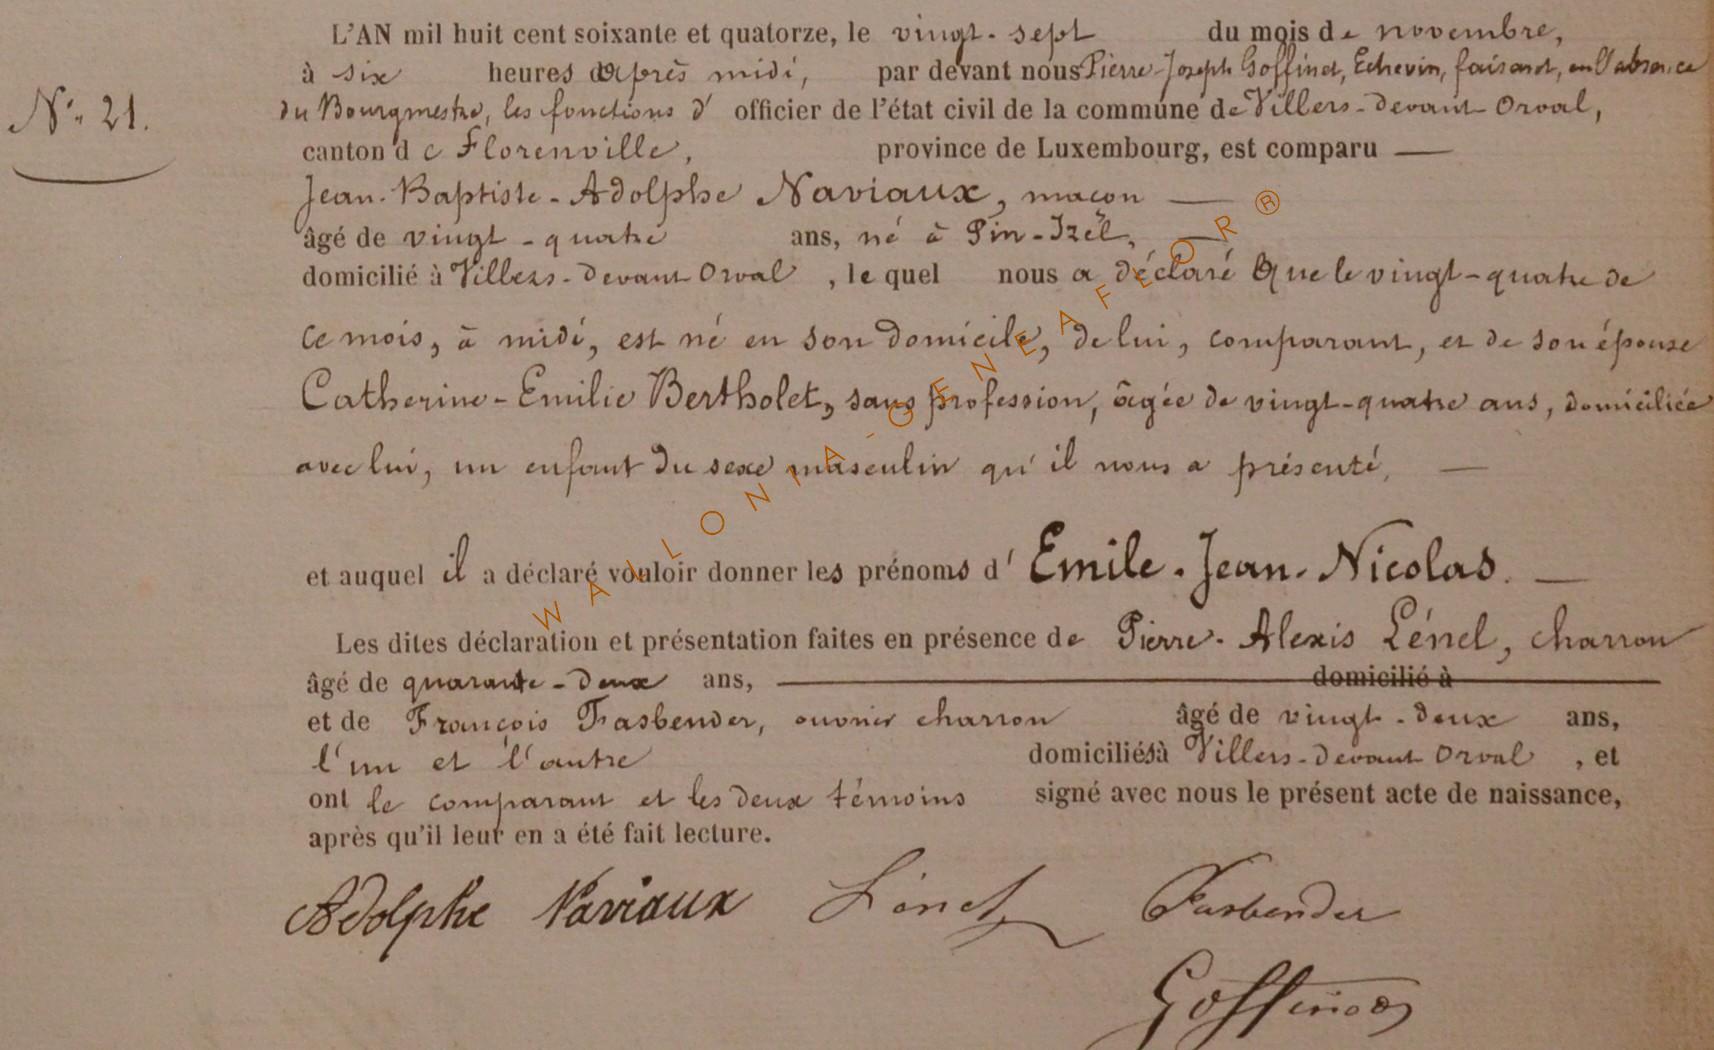 L'AN mil huit cent soixante et quatorze, le vingt-sept du mois de novembre,
à six heures après midi, par devant nous Pierre-Joseph Goffinet, Echevin, faisant, en l'absence
N° 21. du Bourgmestre, les fonctions d' officier de l'état civil de la commune de Villers-devant-Orval,
canton de Florenville, province de Luxembourg, est comparu —
Jean-Baptiste-Adolphe Naviaux, maçon —
âgé de vingt-quatre ans, né à Pin-Izel, —
domicilié à Villers-devant Orval , lequel nous a déclaré que le vingt-quatre de
ce mois, à midi, est né en son domicile, de lui, comparant, et de son épouse
Catherine-Emilie Bertholet, sans profession, âgée de vingt-quatre ans, domiciliée
avec lui, un enfant du sexe masculin qu'il nous a présenté, —
et auquel il a déclaré vouloir donner les prénoms d' Emile-Jean-Nicolas. —
Les dites déclaration et présentation faites en présence de Pierre-Alexis Lénel, charron
âgé de quarante-deux ans, — domicilié à
et de François Fasbender, ouvrier charron âgé de vingt-deux ans,
l'un et l'autre domiciliés à Villers-devant Orval , et
ont le comparant et les deux témoins signé avec nous le présent acte de naissance,
après qu'il leur en a été fait lecture.
Adolphe Naviaux Lénel Fasbender
Goffinet
WALLONIA-GENEAFLOR®